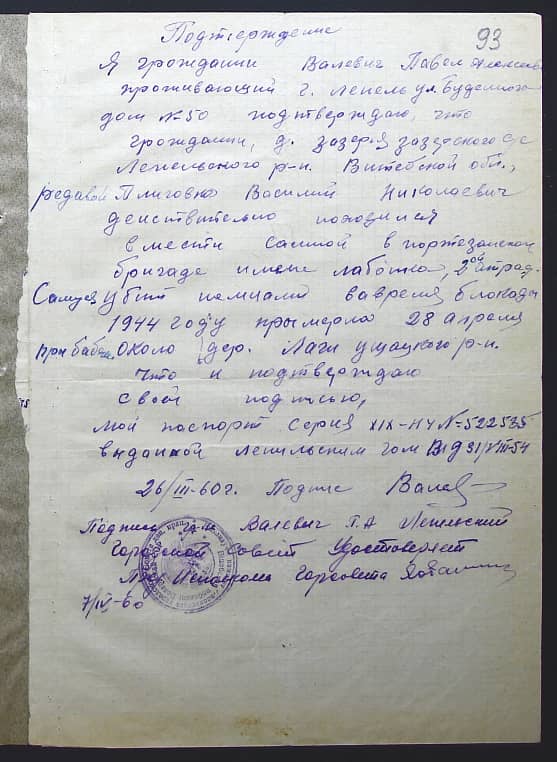 93
Подтверждение
Я грожданин Валевич Павел
проживающий г. Лепель ул. Буденного
дом №50 подтверждаю, что
грожданин, д.
Лепельского р-н. Витебской обл.,
редавой Плиговко Василий Николаевич
действительно находился
вмести самной в портезанской
бригаде имене лабонка, 2ой атрад.
убит немцами вавремя блокады
1944 году прымерло 28 апреля
около дер. ушацкого р-н.
что и подтверждаю
своей подписью,
мой паспорт серия XIX-НЧ №522535
выданной Лепильским гом 31/VIII-54
26/III-60г. Подпис Валев
Подпись гр-на Валевич П.А Лепельский
Городской Совет Удостоверяет
Горсовета
7/IV-60